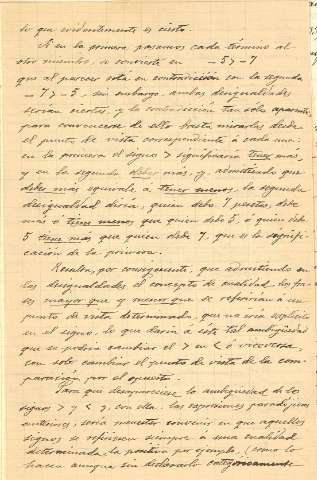 lo que evidentemente es cierto.
Si en la primera pasamos cada término al
otro miembro, se convierte en –5 > –7
que al parecer está en contradicción con la segunda
–7 > –5, sin embargo, ambas desigualdades
serían ciertas, y la contradicción tan sólo aparente,
para convencerse de ello basta mirarlas desde
el punto de vista correspondiente á cada una:
en la primera el signo > significaría tener más,
y en la segunda deber más, y, admitiendo que
deber más equivale á tener menos, la segunda
desigualdad diría, quien debe 7 pesetas, debe
más ó tiene menos que quien debe 5, ó quien debe
5 tiene más que quien debe 7, que es la signifi-
cación de la primera.
Resulta, por consiguiente, que admitiendo en
las desigualdades el concepto de cualidad, las fra-
ses mayor que y menor que se referirían á un
punto de vista determinado, que no iría explícito
en el signo, lo que daría á éste tal ambigüedad
que se podría cambiar el > en < ó viceversa
con solo cambiar el punto de vista de la com-
paración, por el opuesto.
Para que desapareciese la ambigüedad de los
signos > y < y, con ella, las expresiones paradójicas
anteriores, sería menester convenir en que aquellos
signos se refiriesen siempre á una cualidad
determinada, la positiva por ejemplo, (como lo
hacen aunque sin declararlo categóricamente